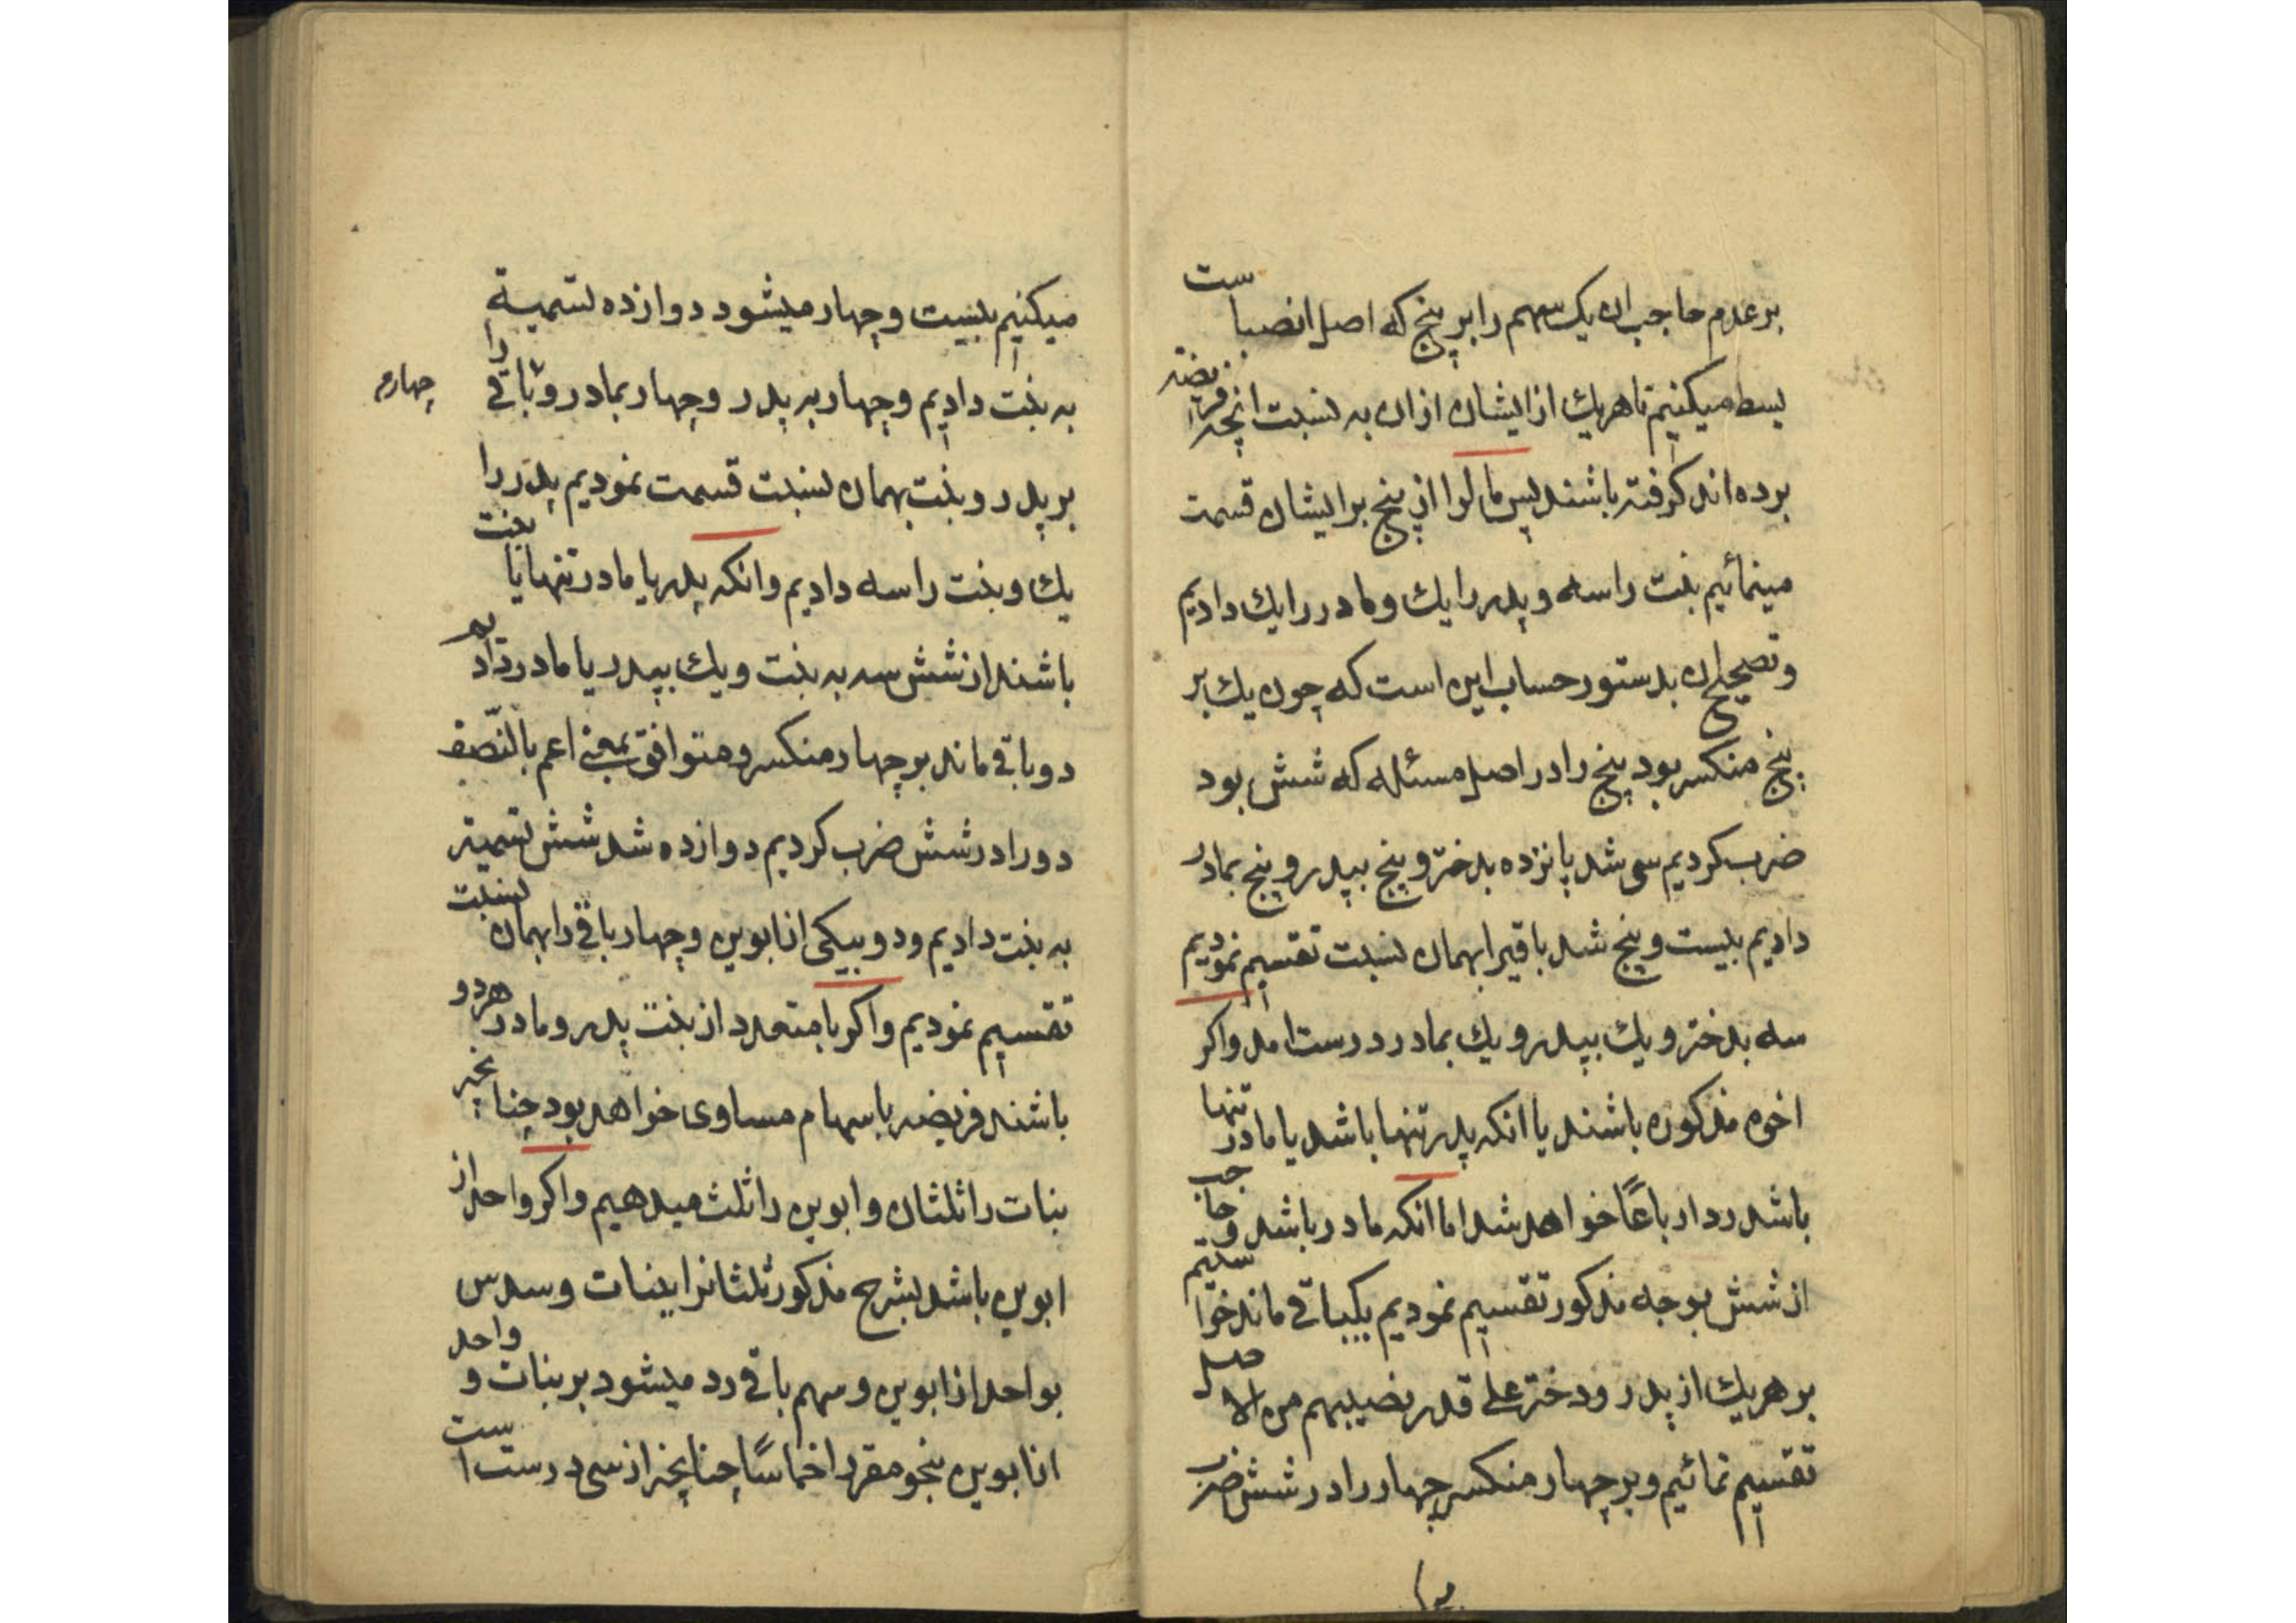 بر عدم حاجب ان یک سهم را بر پنج که اصل انصباست
بسط میکنیم تا هریک از ایشان ازان به نسبت انچه فریضه
برده اند کرفته باشند پس مال را از پنج بر ایشان قسمت
مینمائیم بنت را سه و پدر را یک و مادر را یک دادیم
و تصحیح ان بدستور حساب این است که چون یک بر
پنج منکسر بود پنج را در اصل مسئله که شش بود
ضرب کردیم سی شد پانزده بدختر و پنج بپدر و پنج بمادر
دادیم بیست و پنج شد باقیرا بهمان نسبت تقسیم نمودیم
سه بدختر و یک بپدر و یک بمادر درست امد واکر
اخوه مذکوره باشند یا انکه پدر تنها باشد یا مادر تنها
باشد رد ارباعًا خواهد شد اما انکه مادر باشد و حاجب
از شش بوجه مذکور تقسیم نمودیم یکباقی ماند خواستیم
بر هریک از پدر و دختر علی قدر نصیبهم من الاصل
تقسیم نمائیم و بر چهار منکسر چهار را در شش ضرب
میکنیم بیست و چهار میشود دوازده تسمیة
به بنت دادیم و چهار به پدر و چهار بمادر و باقی را
چهارم
بر پدر و بنت بهمان نسبت قسمت نمودیم پدر را
یک و بنت را سه دادیم وانکه پدر یا مادر تنها با بنت
باشند از شش سه به بنت و یک بپدر یا مادر دادیم
دو باقی ماند بر چهار منکسر و متوافق بمعنی اعم بالنّصف
دو را در شش ضرب کردیم دوازده شد شش تسمیته
به بنت دادیم و دو بیکی از ابوین و چهار باقی را بهمان نسبت
تقسیم نمودیم واکر با متعدد از بنت پدر و مادر هر دو
باشند فریضه با سهام مساوی خواهد بود چنانچه
بنات را ثلثان و ابوین را ثلث میدهیم واکر واحد از
ابوین باشد بشرح مذکور ثلثانرا ببنات و سدس
بواحد از ابوین و سهم باقی رد میشود بر بنات و واحد
از ابوین بنحو مقرر اخماسًا چنانچه از سی درست است